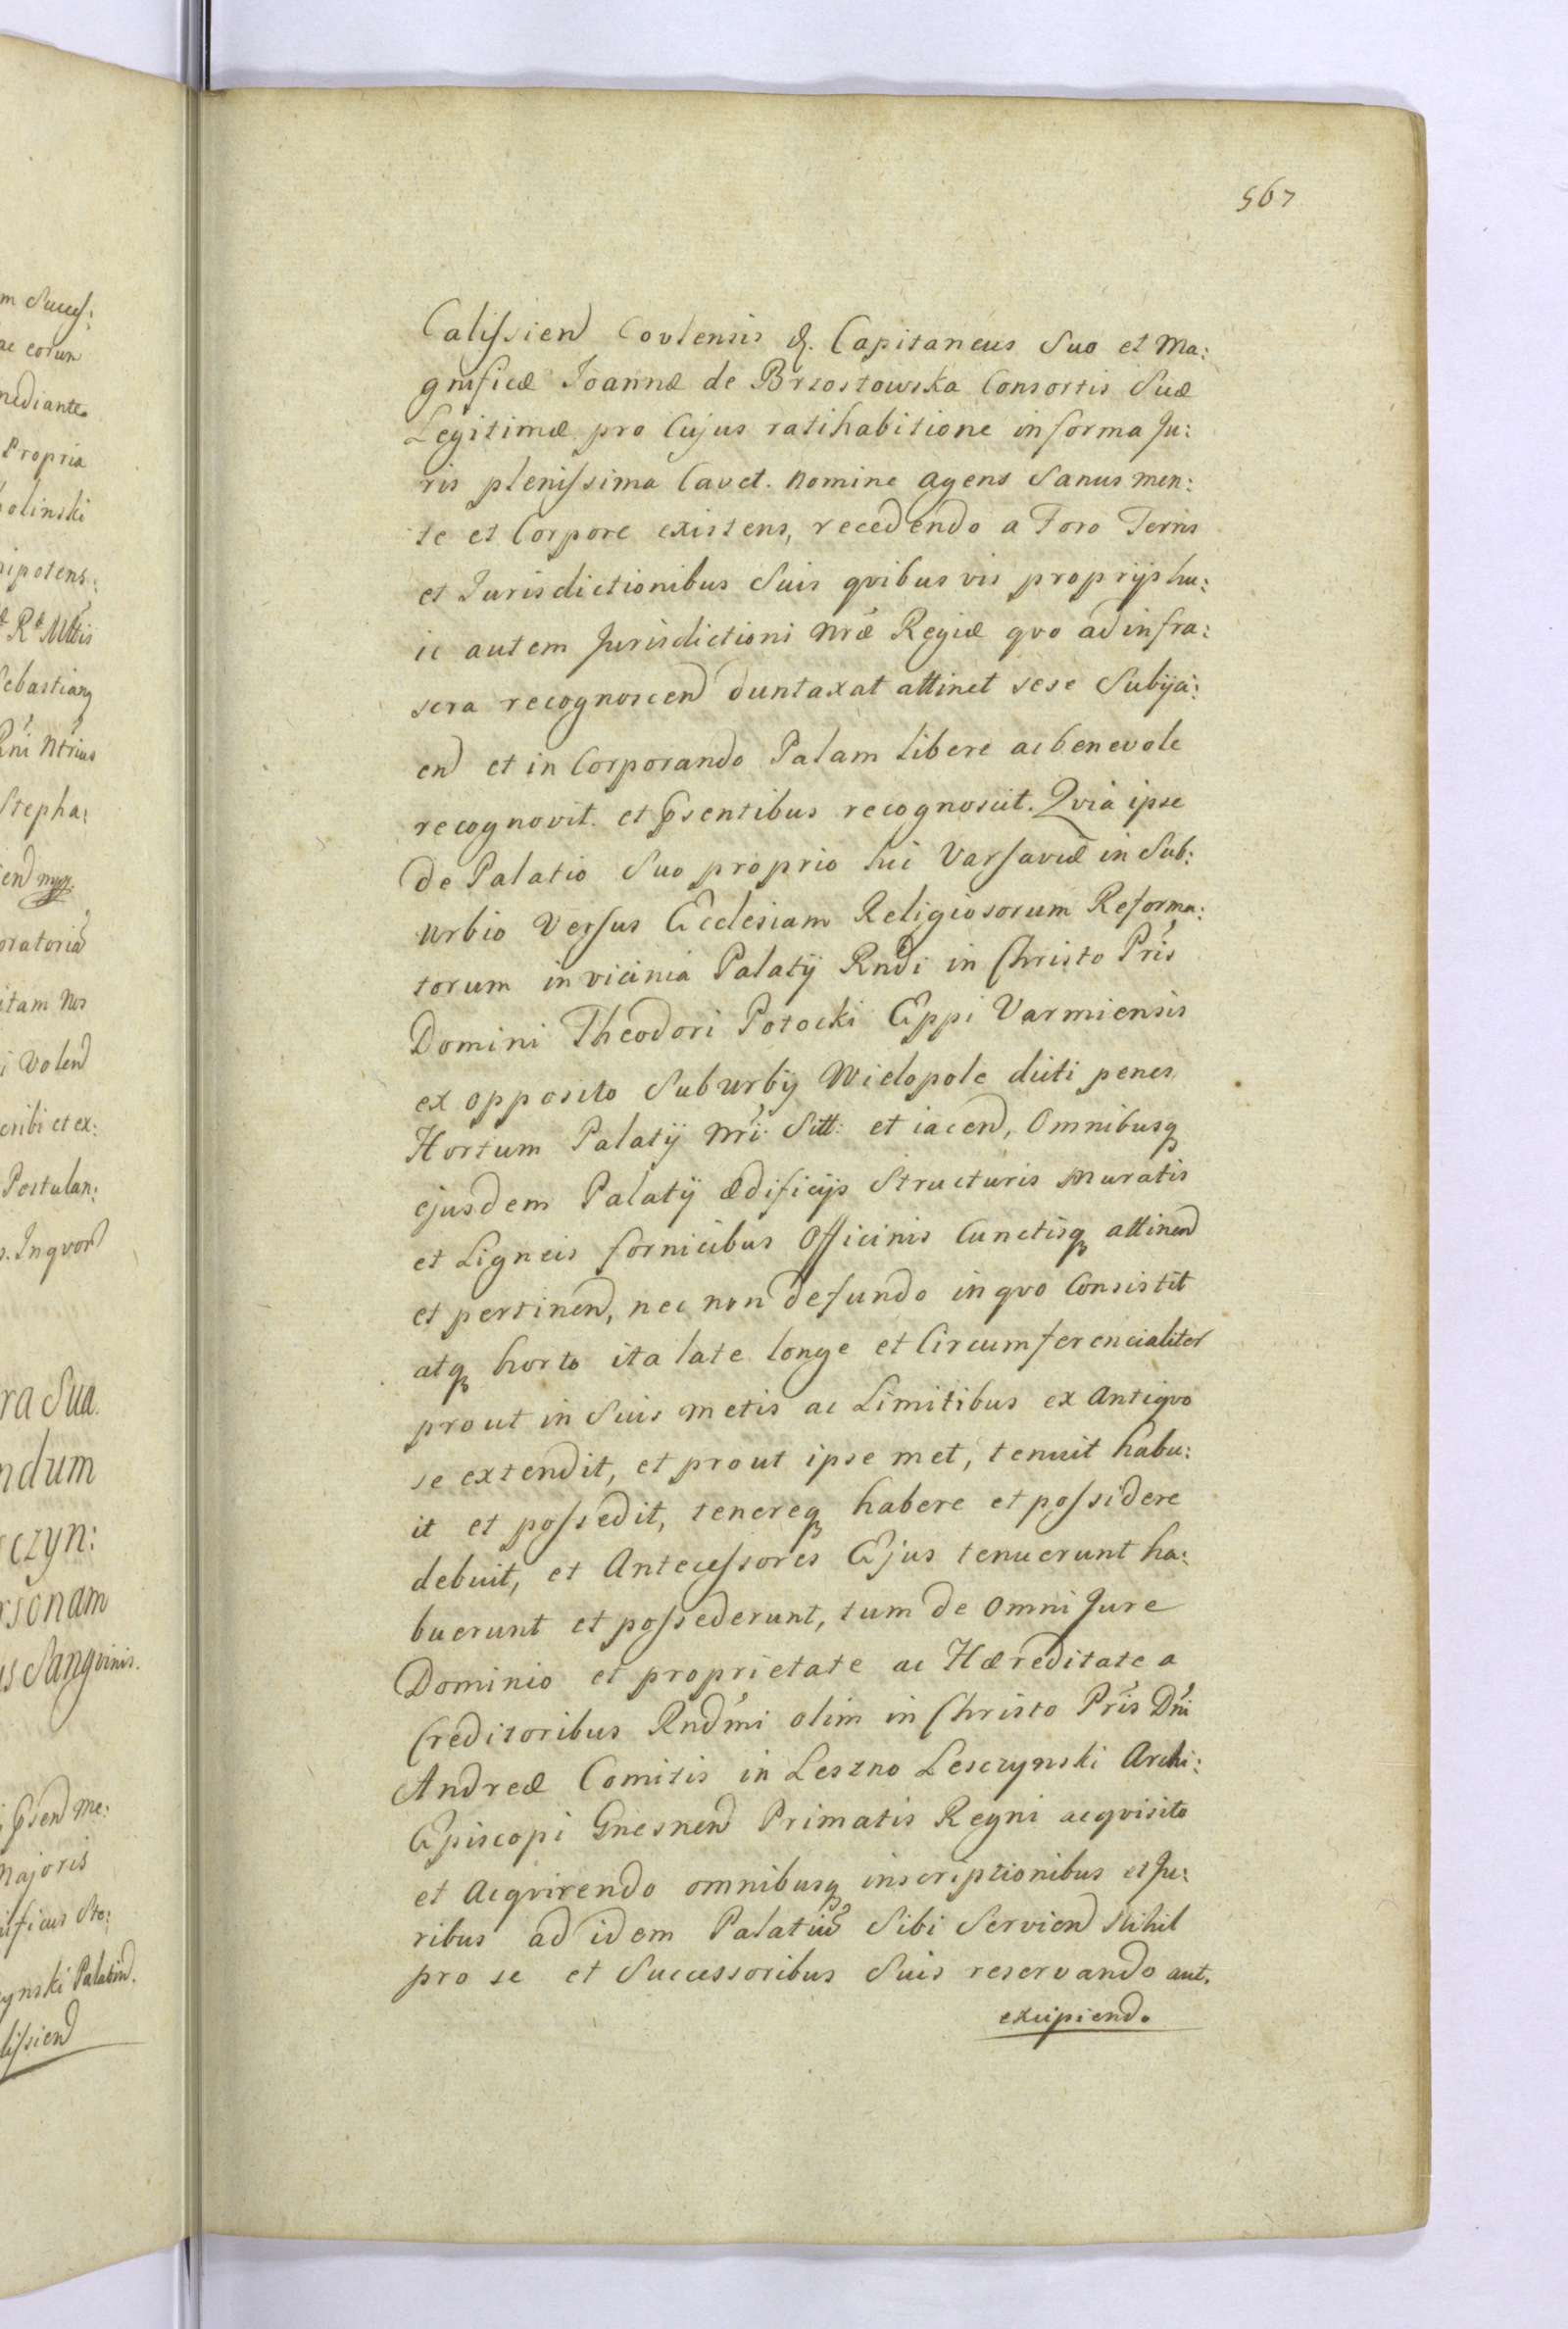 567
Calissien Covlensis &. Capitaneus Suo et Ma:
gnificæ Joannæ de Brzostowska Consortis Suæ
Legitimæ pro Cujus ratihabitione in forma Ju:
ris plenissima Cavet. nomine agens Sanus men:
te et Corpore existens, recedendo a Foro Terris
et Jurisdictionibus Suis qvibusvis proprijs hu:
ic autem Jurisdictioni nræ Regiæ qvo ad infra:
scra recognoscen duntaxat attinet sese Subija:
en et in Corporando Palam libere ac benevole
recognovit. et Psentibus recognoscit. Qvia ipse
de Palatio Suo proprio hic Varsaviæ in Sub:
urbio Versus Ecclesiam Religiosorum Reforma:
torum in vicinia Palatij Rndi in Christo Pris
Domini Theodori Potocki Eppi Varmiensis
ex opposito Suburbij Wielopole dicti penes
Hortum Palatij nri Sitt: et iacen, Omnibusq
ejusdem Palatij ædificijs Structuris Muratis
et Ligneis fornicibus Officinis Cunctisq attinen
et pertinen, nec non de fundo in qvo Consistit
atq horto ita late longe et Circumferencialiter
prout in Suis metis ac Limitibus ex Antiqvo
se extendit, et prout ipse met, tenuit habu:
it et possedit, tenereq habere et possidere
debuit, et Antecessores Ejus tenuerunt ha:
buerunt et possederunt, tum de Omni Jure
Dominio et proprietate ac Hæreditate a
Creditoribus Rndmi olim in Christo Pris Dni
Andreæ Comitis in Leszno Lesczynski Archi:
Episcopi Gnesnen Primatis Regni acqvisito
et Acqvirendo omnibusq inscriptionibus et Ju:
ribus ad idem Palatiu Sibi Servien Nihil
pro se et Successoribus Suis reservando aut.
excipiend.